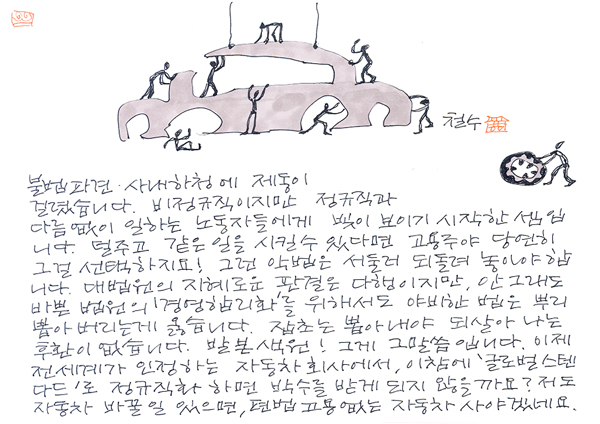 철수
불법파견·사내하청에 제동이
걸렸습니다. 비정규직이지만 정규직과
다름없이 일하는 노동자들에게 빛이 보이기 시작한 셈입
니다. 덜주고 같은 일을 시킬수 있다면 고용주야 당연히
그걸 선택하지요! 그런 악법은 서둘러 되돌려 놓아야합
니다. 대법원의 지혜로운 판결은 다행이지만, 안그래도
바쁜 법원의 '경영합리화'를 위해서도 야비한 법은 뿌리
뽑아버리는게 옳습니다. 잡초는 뽑아내야 되살아 나는
후환이 없습니다. 발본색원! 그게 그말씀입니다. 이제
전세계가 인정하는 자동차회사에서, 이참에 '글로벌스텐
다드'로 정규직화 하면 박수를 받게 되지 않을까요? 저도
자동차 바꿀일 있으면, 편법고용없는 자동차 사야겠네요.